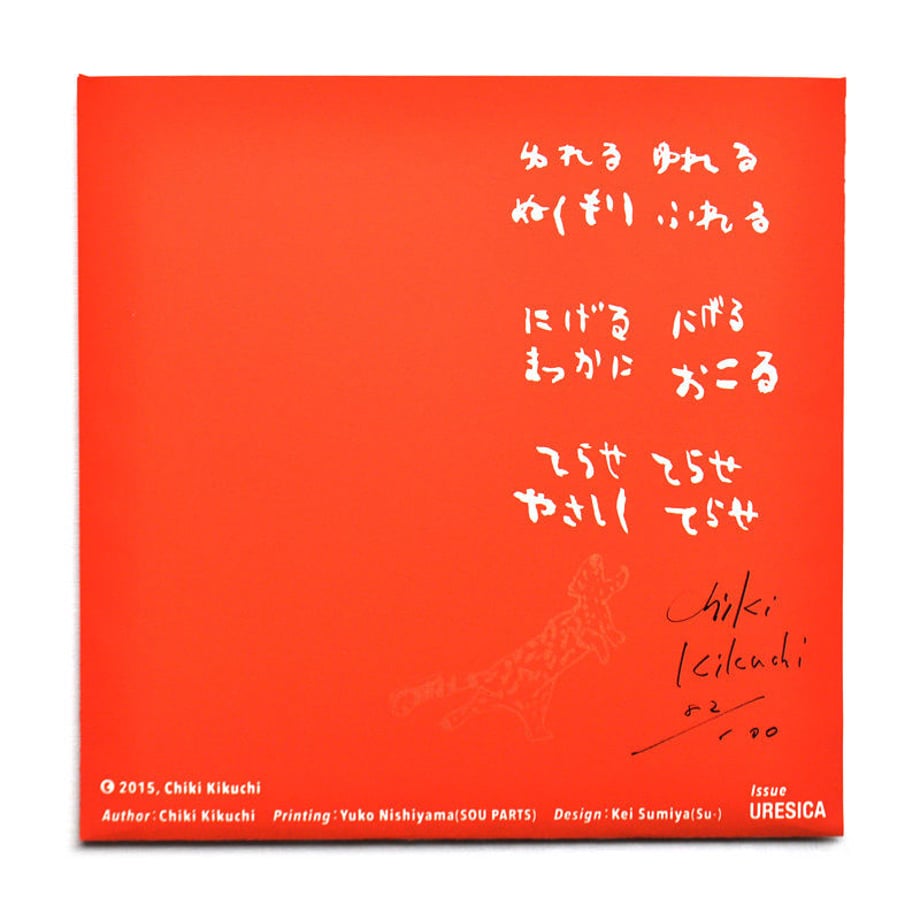 ゆれる ゆれる
ぬくもり ふれる
にげる にげる
まっかに おこる
てらせ てらせ
やさしく てらせ
Chiki
Kikuchi
82/100
© 2015, Chiki Kikuchi
Author:Chiki Kikuchi Printing:Yuko Nishiyama(SOU PARTS) Design:Kei Sumiya(Su-)
Issue
URESICA